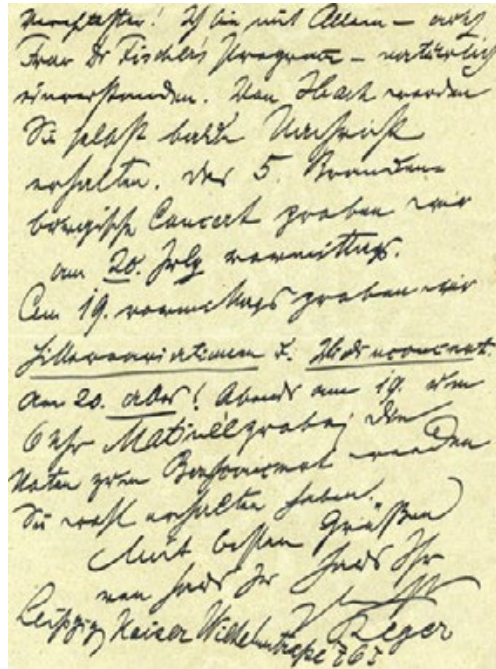 Verehrtester! Ich bin mit Allem – auch
Frau Dr Fischer's Program – natürlich
einverstanden. Von Ibach werden
Sie selbst bald Nachricht
erhalten. Das 5. Branden-
burgische Concert proben wir
am 20. July vormittags.
Am 19. vormittags proben wir
Hillervariationen u.
Am 20. aber! Abends am 19. um
6 Uhr Matinéeprobe; die
Noten zum Bachconcert werden
Sie wohl erhalten haben.
Mit besten Grüßen
von Haus zu Haus Ihr
Reger
Leipzig, Kaiser Wilhelmstraße